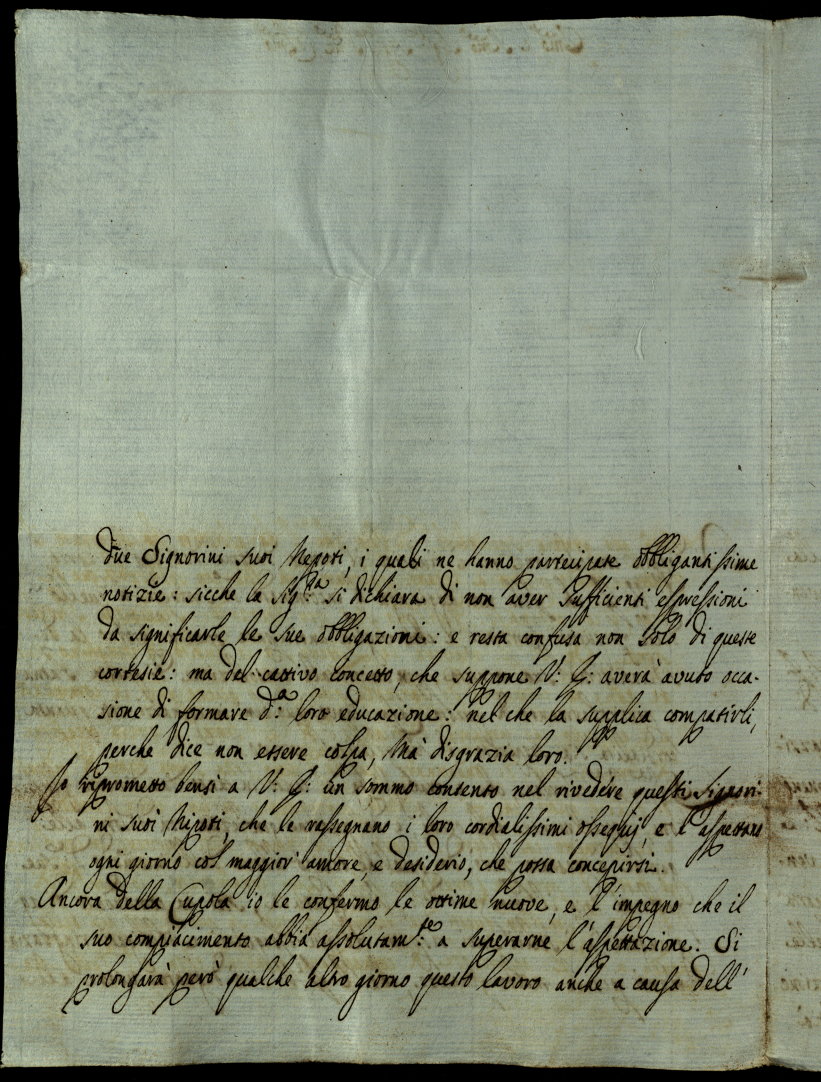 due Signorini suoi Nepoti, i quali ne hanno partecipate obbligantissime
notizie: sicche la Sig.ra si dichiara di non aver sufficienti espressioni
da significarle le sue obbligazioni: e resta confusa non solo di queste
cortesie: ma del cattivo concetto, che suppone V: averà avuto occa-
sione di formare d.a loro educazione: nel che la supplica compatirli,
perche dice non essere colpa, mà disgrazia loro.
Io riprometto bensì a V: un sommo contento nel rivedére questi Signori-
ni suoi Nipoti, che le rassegnano i loro cordialissimi ossequj, e l'aspettano
ogni giorno col maggior amore, e desiderio, che possa concepirsi.
Ancora della Cupola io le confermo le ottime nuove, e l'impegno che il
suo compiacimento abbia assolutam.te a superarne l'aspettazione. Si
prolongarà però qualche altro giorno questo lavoro anche a causa dell'